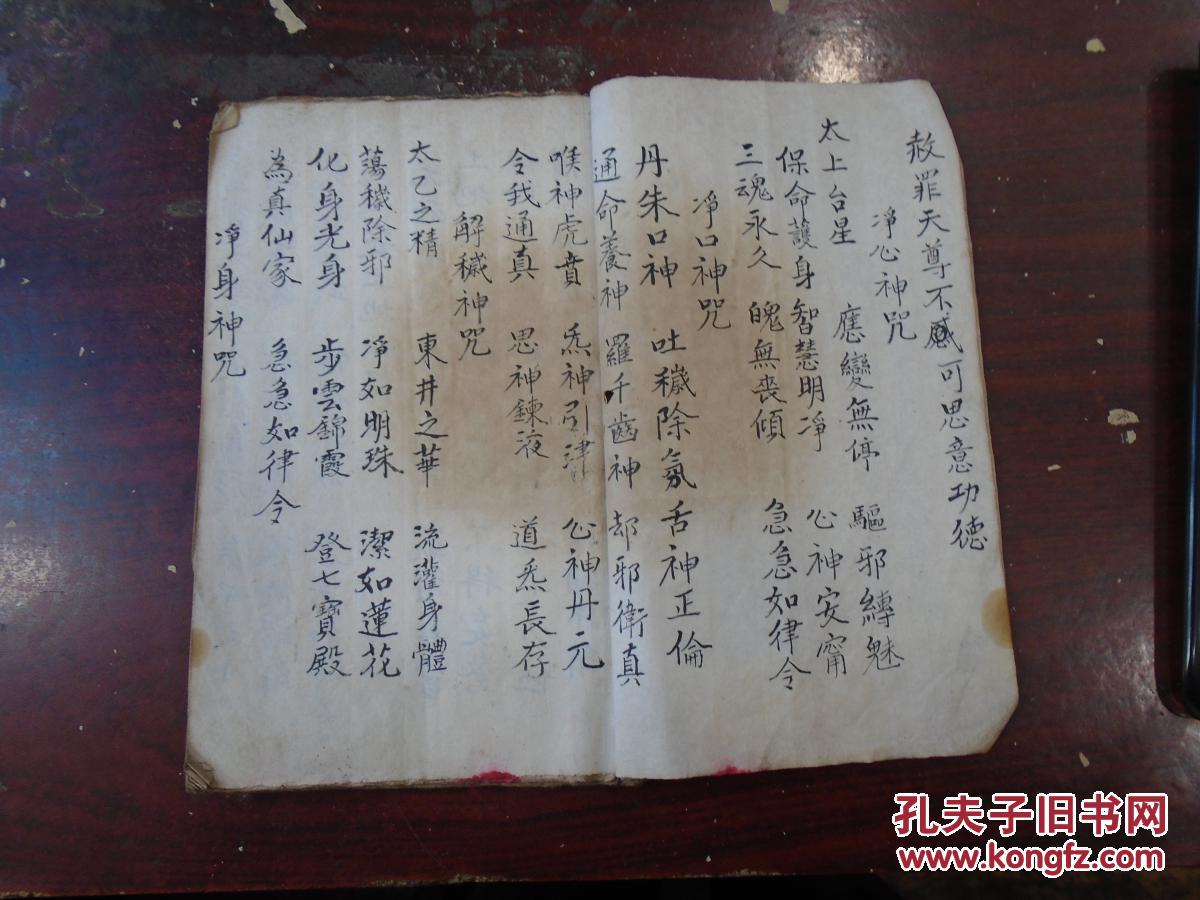 赦罪天尊不感可思意功德
淨心神咒
太上台星 應變無停 驅邪縛魅
保命護身 智慧明淨 心神安甯
三魂永久 魄無喪傾 急急如律令
淨口神咒
丹朱口神 吐穢除氛 舌神正倫
通命養神 羅千齒神 却邪衛真
喉神虎賁 炁神引津 心神丹元
令我通真 思神鍊液 道炁長存
解穢神咒
太乙之精 東井之華 流灌身體
蕩穢除邪 淨如明珠 潔如蓮花
化身光身 步雲錦霞 登七寶殿
為真仙家 急急如律令
淨身神咒
孔夫子旧书网
www.kongfz.com